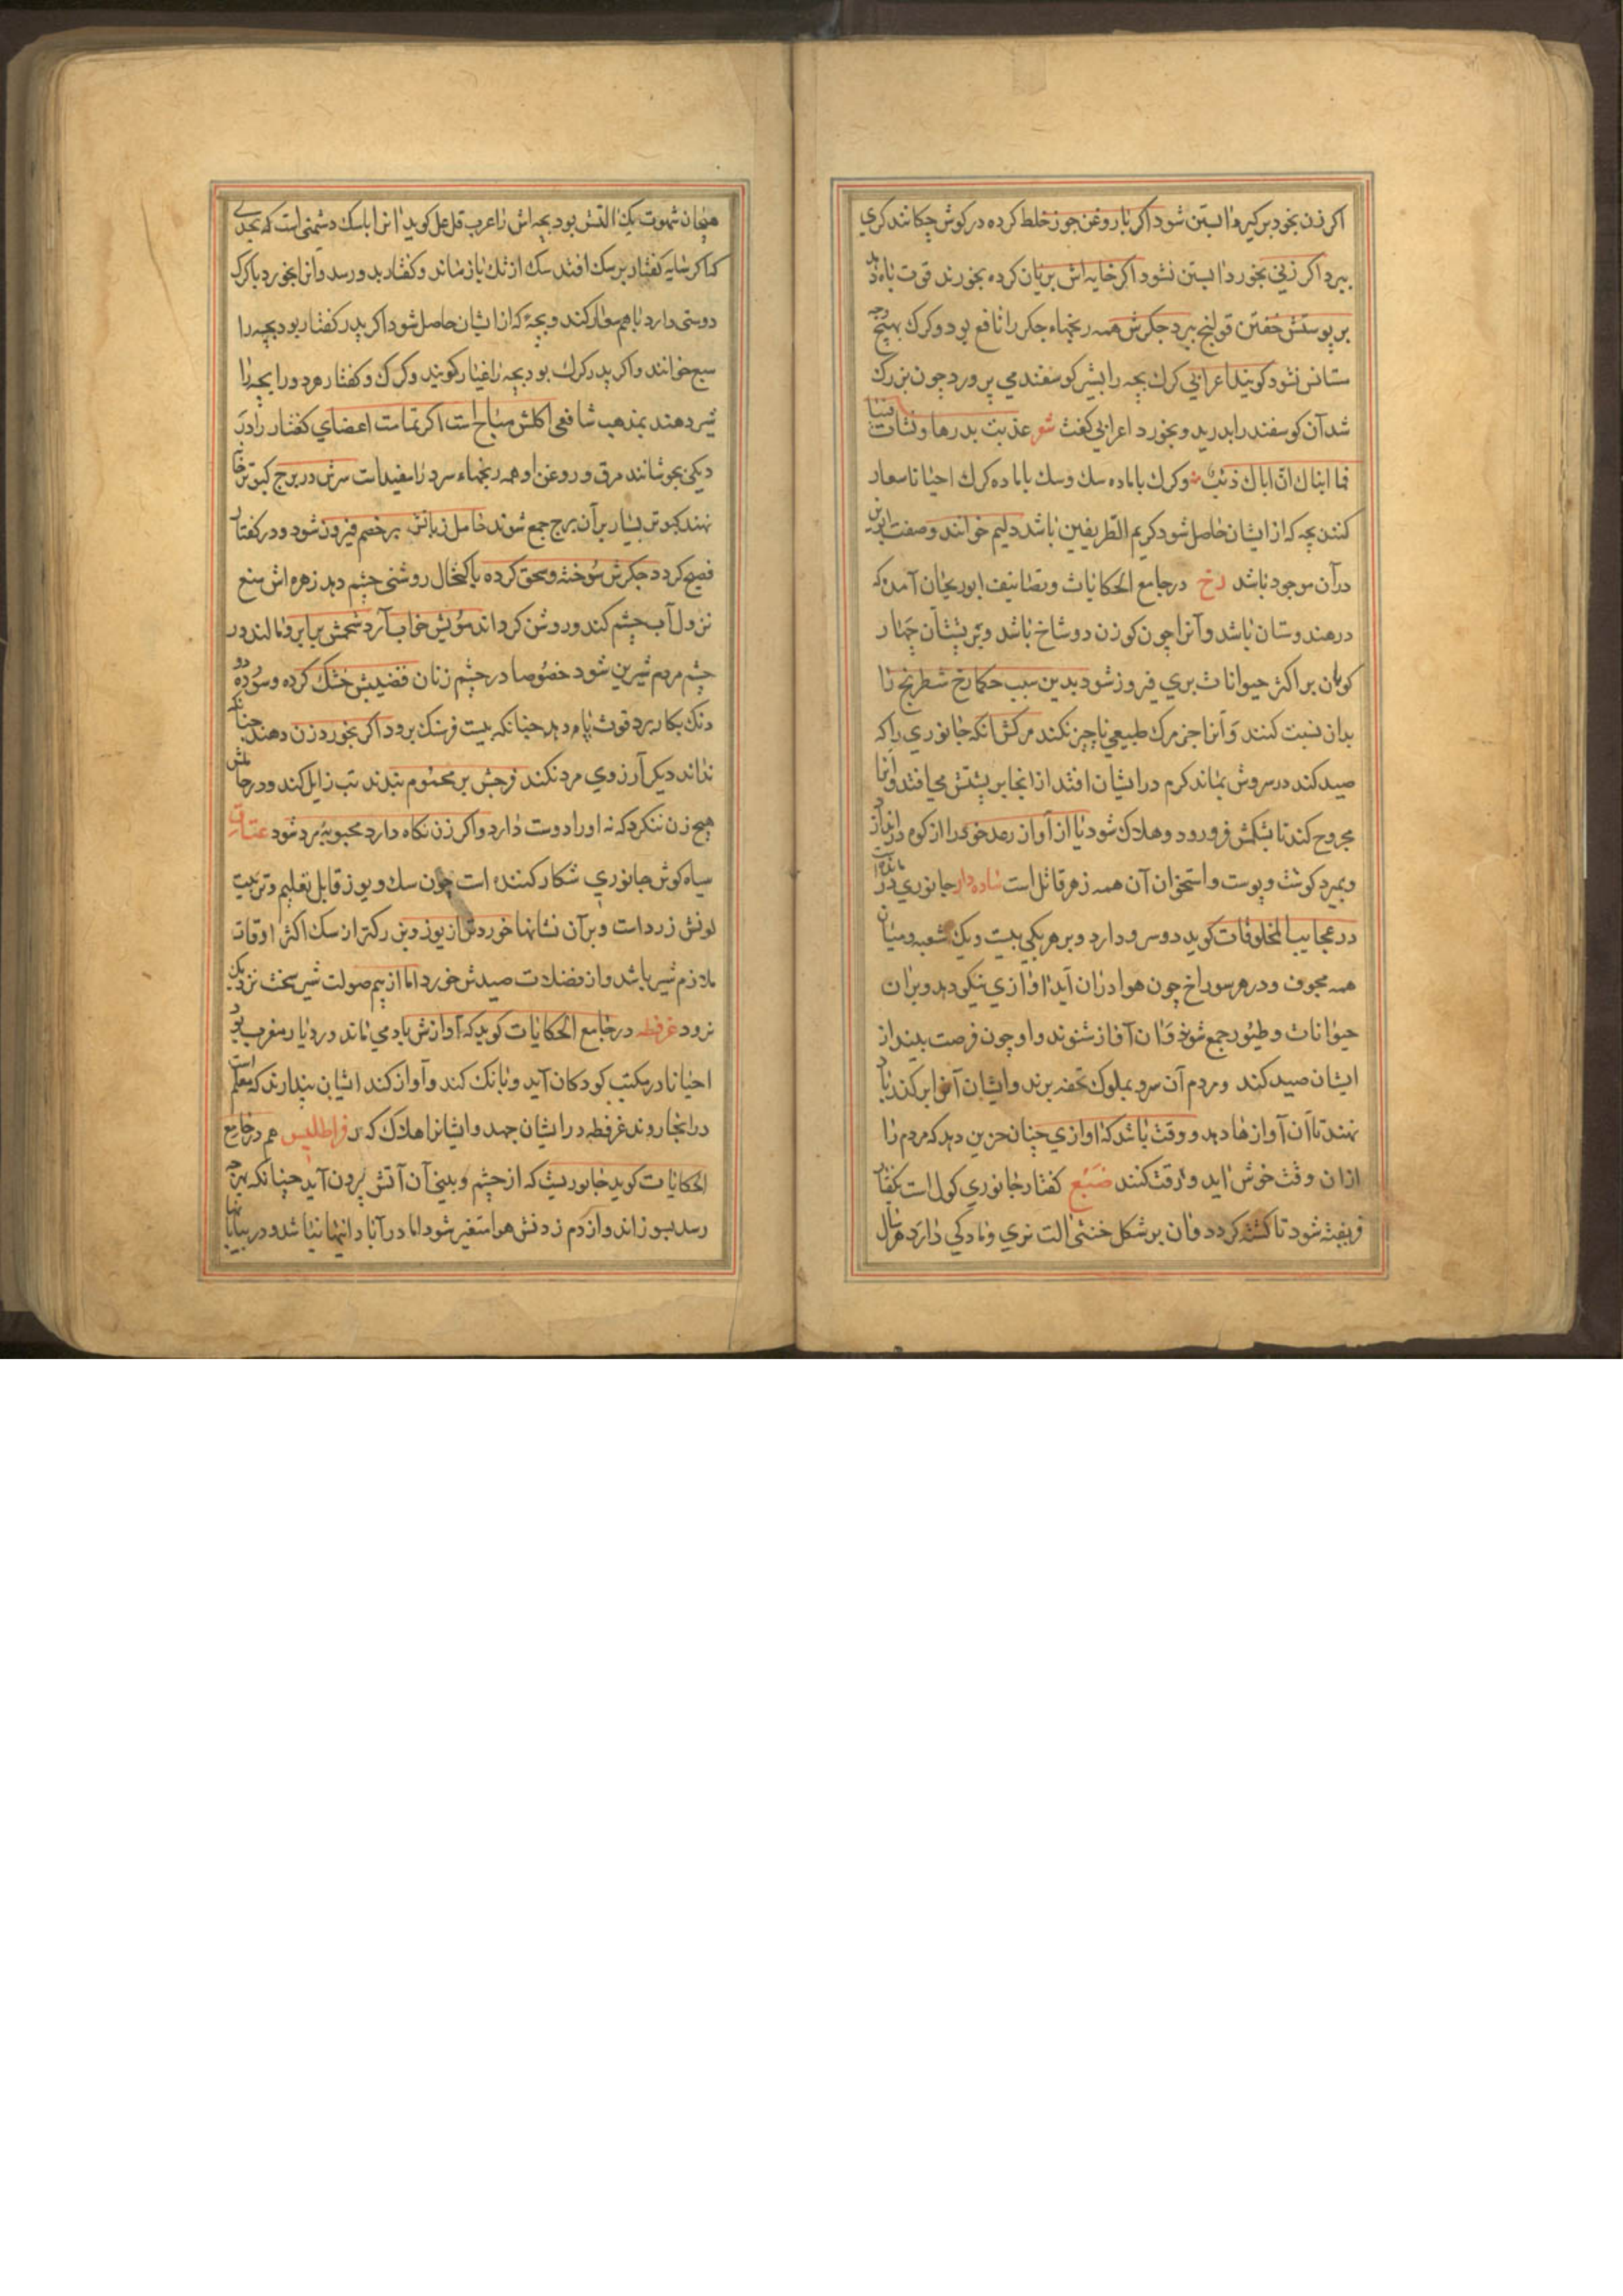 اکر زن بخود برکیرد ابستن شود اکر با روغن جوز خلط کرده در کوش چکانند کری
ببرد اکر زنی بخورد ابستن نشود اکر خایه اش بریان کرده بخورند قوت باه دهد
بر پوستش خفتن قولنج ببرد جکرش همه رنجهاء جکر را نافع بود و کرک بهیچ وجه
ستانس نشود کویند اعرابی کرک بچه را بشیر کوسفند می پرورد چون بزرک
شد آن کوسفند را بدرید و بخورد اعرابی کفت شعر غذیت بدرها و نشات فینا
فما انباک ان اباک ذئب و کرک با ماده سک و سک با ماده کرک احیانا سعاد
کنند بچه که از ایشان حاصل شود کریم الطرفین باشد دلیم خوانند و صفت ابوین
در آن موجود باشد رخ در جامع الحکایات و تصانیف ابوریحان آمده که
در هندوستان باشد و آنرا چون کوزن دو شاخ باشد و بر پشتان چهار
کوهان بر اکثر حیوانات بری فیروز شود بدین سبب حکما رخ شطرنج را
بدان نسبت کنند و آنرا جز مرک طبیعی ناچیز نکند مرکش انکه جانوری را که
صید کند در سروش بماند کرم در ایشان افتد از انجا بر پشتش می افتد و آنرا
مجروح کند تا بشکمش فرو رود و هلاک شود یا از آواز رعد خود را از کوه در انداز د
و بمیرد کوشت و پوست و استخوان آن همه زهر قاتل است شاده دار جانوری در
در عجایب المخلوقات کوید دو سرو دارد و بر هر یکی بیست و یک شعبه و میان
همه مجوف و در هر سوراخ چون هوا دران آید اوازی نیکو دهد و بران
حیوانات و طیور جمع شوند و آن آواز شنوند و او چون فرصت بیند از
ایشان صید کند و مردم آن سرو بملوک تحفه برند و ایشان آنرا بر کذر باد
نهند تا آن آوازها دهد و وقت باشد که اوازی چنان حزین دهد که مردم را
ازان وقت خوش اید و رقت کنند ضبع کفتار جانوری کول است بکفتار
فریفته شود تا کشته کردد و آن بر شکل خنثی الت نری و مادکی دارد هر سال
هیجان شهوت یک التش بود بچه اش را عرب قلعل کوید انرا با سک دشمنی است که بحدی
که اکر سایه کفتار بر سک افتد سک از تک باز ماند و کفتار بدو رسد و انرا بخورد با کرک
دوستی دارد با هم سوار کنند و بچۀ که از ایشان حاصل شود اکر پدر کفتار بود بچه را
سبع خوانند و اکر پدر کرک بود بچه را غیار کویند و کرک و کفتار هردو را بچه را
شیر دهند بمذهب شافعی اکلش مباح است اکر تمامت اعضای کفتار را در
دیکی بجوشانند مرق و روغن او همه رنجهاء سرد را مفید است سرش در برج کبوتر خانه
نهند کبوتر بسیار بر آن برج جمع شوند حامل زبانش بر خصم فیروز شود و در کفتار
فصیح کردد جکرش سوخته و سحق کرده با کتحال روشنی چشم دهد زهره اش منع
نزول آب چشم کند و روشن کرداند مویش خواب آرد شحمش بر ابرو مالند در
چشم مردم شیرین شود خصوصا در چشم زنان قضیبش خشک کرده و سوده دو
دنک بکار برد قوت باه دهد چنانکه بیست فرسنک برود اکر بخورد زن دهند چنانکه
نداند دیکر آرزوی مرد نکند فرجش بر محموم بندند تب زایل کند و در حاملش
هیچ زن ننکرد که نه اورا دوست دارد و اکر زن نکاه دارد محبوبۀ مرد شود عناق
سیاه کوش جانوری شکار کننده است چون سک و یوز قابل تعلیم و تربیت
لونش زرد است و بر آن نشانها خوردتر از یوز و بزرکتر از سک اکثر اوقات
ملازم شیر باشد و از فضلات صیدش خورد اما از بیم صولت شیر سخت نزدیک
نرود غرفطه در جامع الحکایات کوید که آوازش بادمی ماند و در دیار مغرب بود
احیانا در مکتب کودکان آید و بانک کند و آواز کند ایشان پندارند که معلم است
در انجا روند غرفطه در ایشان جهد و ایشانرا هلاک کند فراطلیس هم در جامع
الحکایات کوید جانوریست که از چشم و بینی آن آتش بیرون آید چنانکه بهر چه
رسد بسوزاند و از دم زدنش هوا متغیر شود اما در آبادانیها نیاشد و در بیابانها